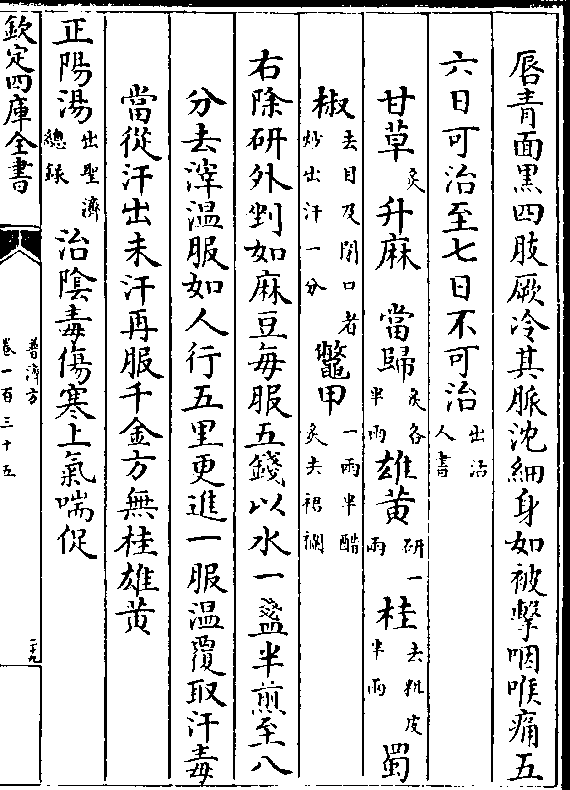 唇青面黒四肢厥冷其脈沈細身如被擊咽喉痛五
六日可治至七日不可治出活人書
甘草炙升麻 當歸炙各半兩雄黄研一兩桂去粗皮半兩蜀
椒去目及閉口者炒出汗一分鼈甲一兩半醋炙去裙襴
右除研外剉如麻豆每服五錢以水一盞半煎至八
分去滓溫服如人行五里更進一服溫覆取汗毒
當從汗出未汗再服千金方無桂雄黄
正陽湯出聖濟總録治陰毒傷寒上氣喘促
欽定四庫全書
普濟方
卷一百三十五
二十九